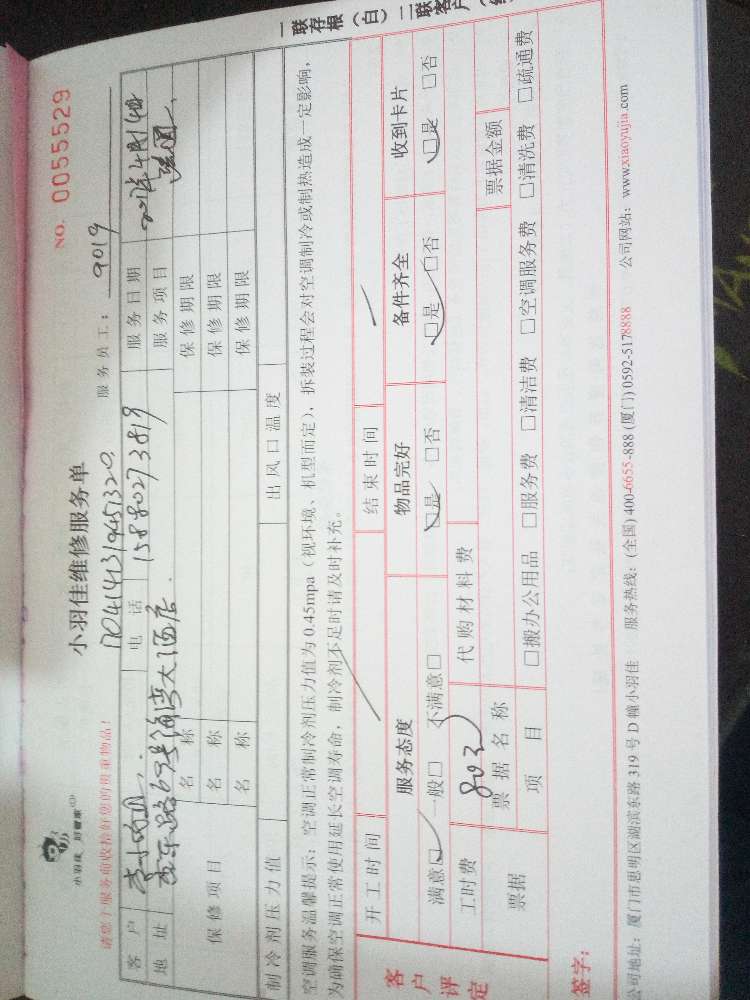 小羽佳 好管家
小羽佳维修服务单
NO. 0055529
请您于服务前收拾好您的贵重物品!
1704141319451320
服务员工: 9019
客户 李小姐 电话 15880273819 服务日期 2017年4月14日
地址 69号海湾大酒店 服务项目
保修项目 名称 保修期限
名称 保修期限
名称 保修期限
制冷剂压力值 出风口温度
空调服务温馨提示: 空调正常制冷剂压力值为 0.45mpa (视环境、机型而定), 拆装过程会对空调制冷或制热造成一定影响,
为确保空调正常使用延长空调寿命, 制冷剂不足时请及时补充。
客户评定
开工时间 结束时间
服务态度 物品完好 备件齐全 收到卡片
满意□ 一般□ 不满意□ □是 □否 □是 □否 □是 □否
工时费 80元 代购材料费
票据 票据名称 票据金额
项目 □搬办公用品 □服务费 □清洁费 □空调服务费 □清洗费 □疏通费
签字:
公司地址: 厦门市思明区湖滨东路 319 号 D 幢小羽佳 服务热线: (全国) 400-6655-888 (厦门) 0592-5178888 公司网站: www.xiaoyujia.com
一联存根(白) 二联客户